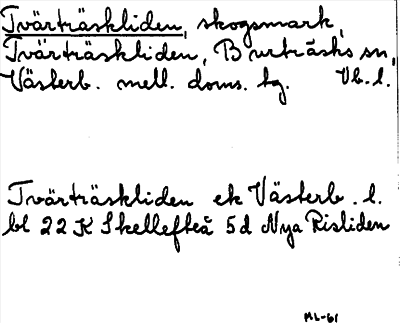 Tvärträskliden, skogsmark,
Tvärträskliden, Burträsks sn,
Västerb. mell. doms. tg. Vb. l.
Tvärträskliden ek Västerb. l.
bl 22 K Skellefteå 5d Nya Risliden
ML-61